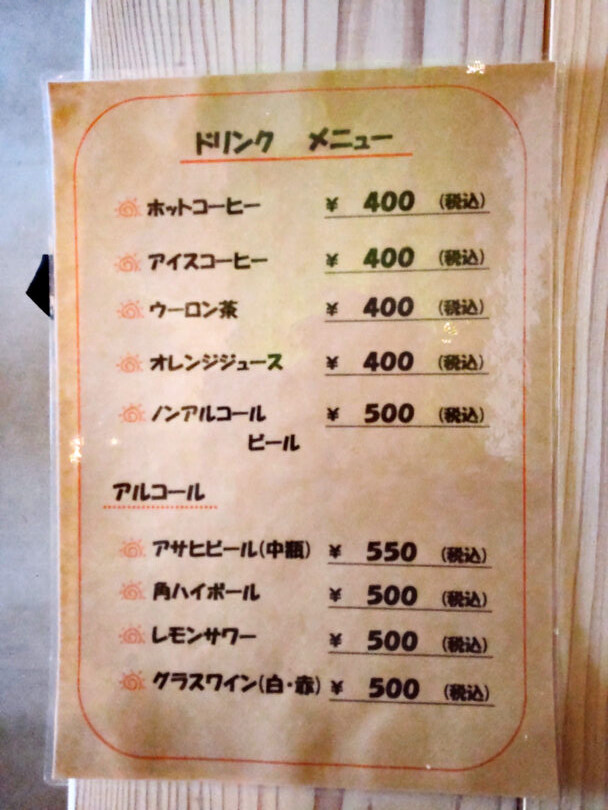 ドリンク メニュー
ホットコーヒー ¥ 400 (税込)
アイスコーヒー ¥ 400 (税込)
ウーロン茶 ¥ 400 (税込)
オレンジジュース ¥ 400 (税込)
ノンアルコール ¥ 500 (税込)
ビール
アルコール
アサヒビール(中瓶) ¥ 550 (税込)
角ハイボール ¥ 500 (税込)
レモンサワー ¥ 500 (税込)
グラスワイン(白・赤) ¥ 500 (税込)